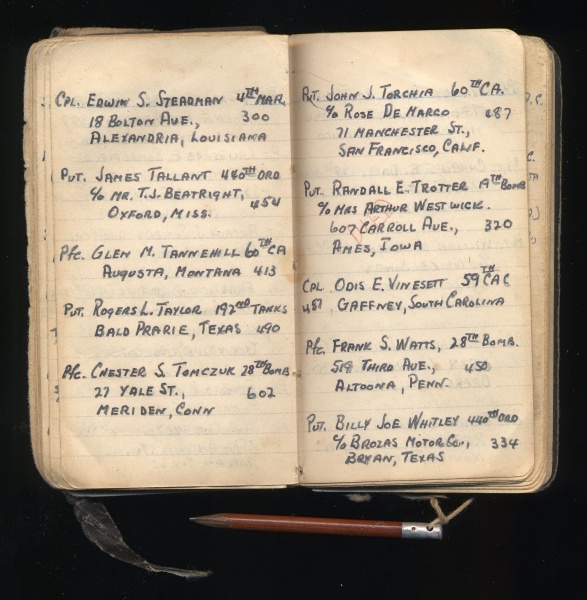 CPL. EDWIN S. STEADMAN 4TH MAR.
18 BOLTON AVE., 300
ALEXANDRIA, LOUISIANA
PVT. JAMES TALLANT 440TH ORD
c/o MR. T.J. BEATRIGHT,
OXFORD, MISS. 454
Pfc. GLEN M. TANNEHILL 60TH CA
AUGUSTA, MONTANA 413
PVT. ROGERS L. TAYLOR 192ND TANKS
BALD PRARIE, TEXAS 490
Pfc. CHESTER S. TOMCZUK 28TH BOMB
27 YALE ST., 602
MERIDEN, CONN
PVT. JOHN J. TORCHIA 60TH CA.
c/o ROSE DE MARCO 487
71 MANCHESTER ST.,
SAN FRANCISCO, CALIF.
PVT. RANDALL E. TROTTER 19TH BOMB
c/o MRS ARTHUR WESTWICK.
607 CARROLL AVE., 320
AMES, IOWA
CPL ODIS E. VINESETT 59TH CAC
487, GAFFNEY, SOUTH CAROLINA
Pfc. FRANK S. WATTS, 28TH BOMB.
519 THIRD AVE., 450
ALTOONA, PENN.
PVT. BILLY JOE WHITLEY 440TH ORD
c/o BROZAS MOTOR CO., 334
BRYAN, TEXAS